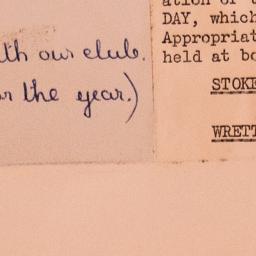 th our club.
the year.)
DAY, which
Appropriat
held at bo
STOKE
WRETT